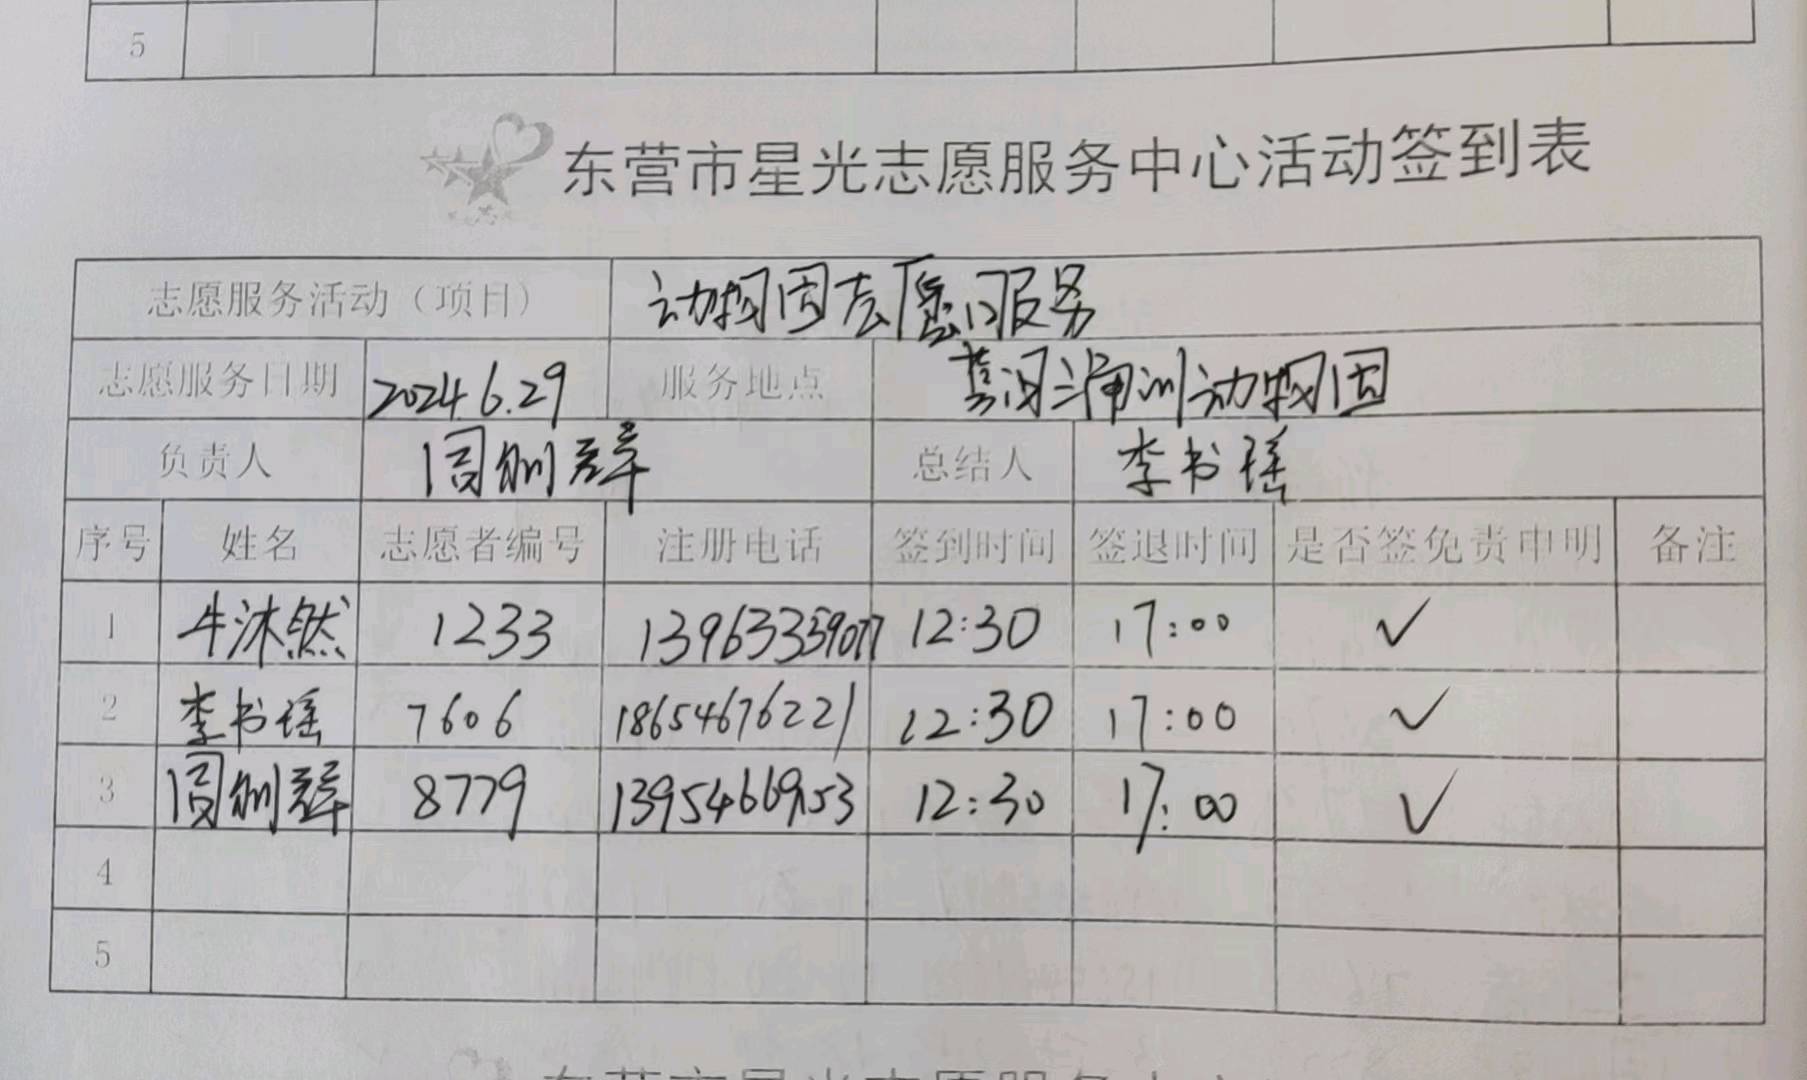 5
东营市星光志愿服务中心活动签到表
志愿服务活动（项目） 动物园志愿服务
志愿服务日期 2024.6.29 服务地点 黄河三角洲动物园
负责人 总结人 李书瑶
序号 姓名 志愿者编号 注册电话 签到时间 签退时间 是否签免责申明 备注
1 牛沐然 1233 13963359077 12:30 17:00 ✓
2 李书瑶 7606 18654676221 12:30 17:00 ✓
3 8779 12:30 17:00 ✓
4
5